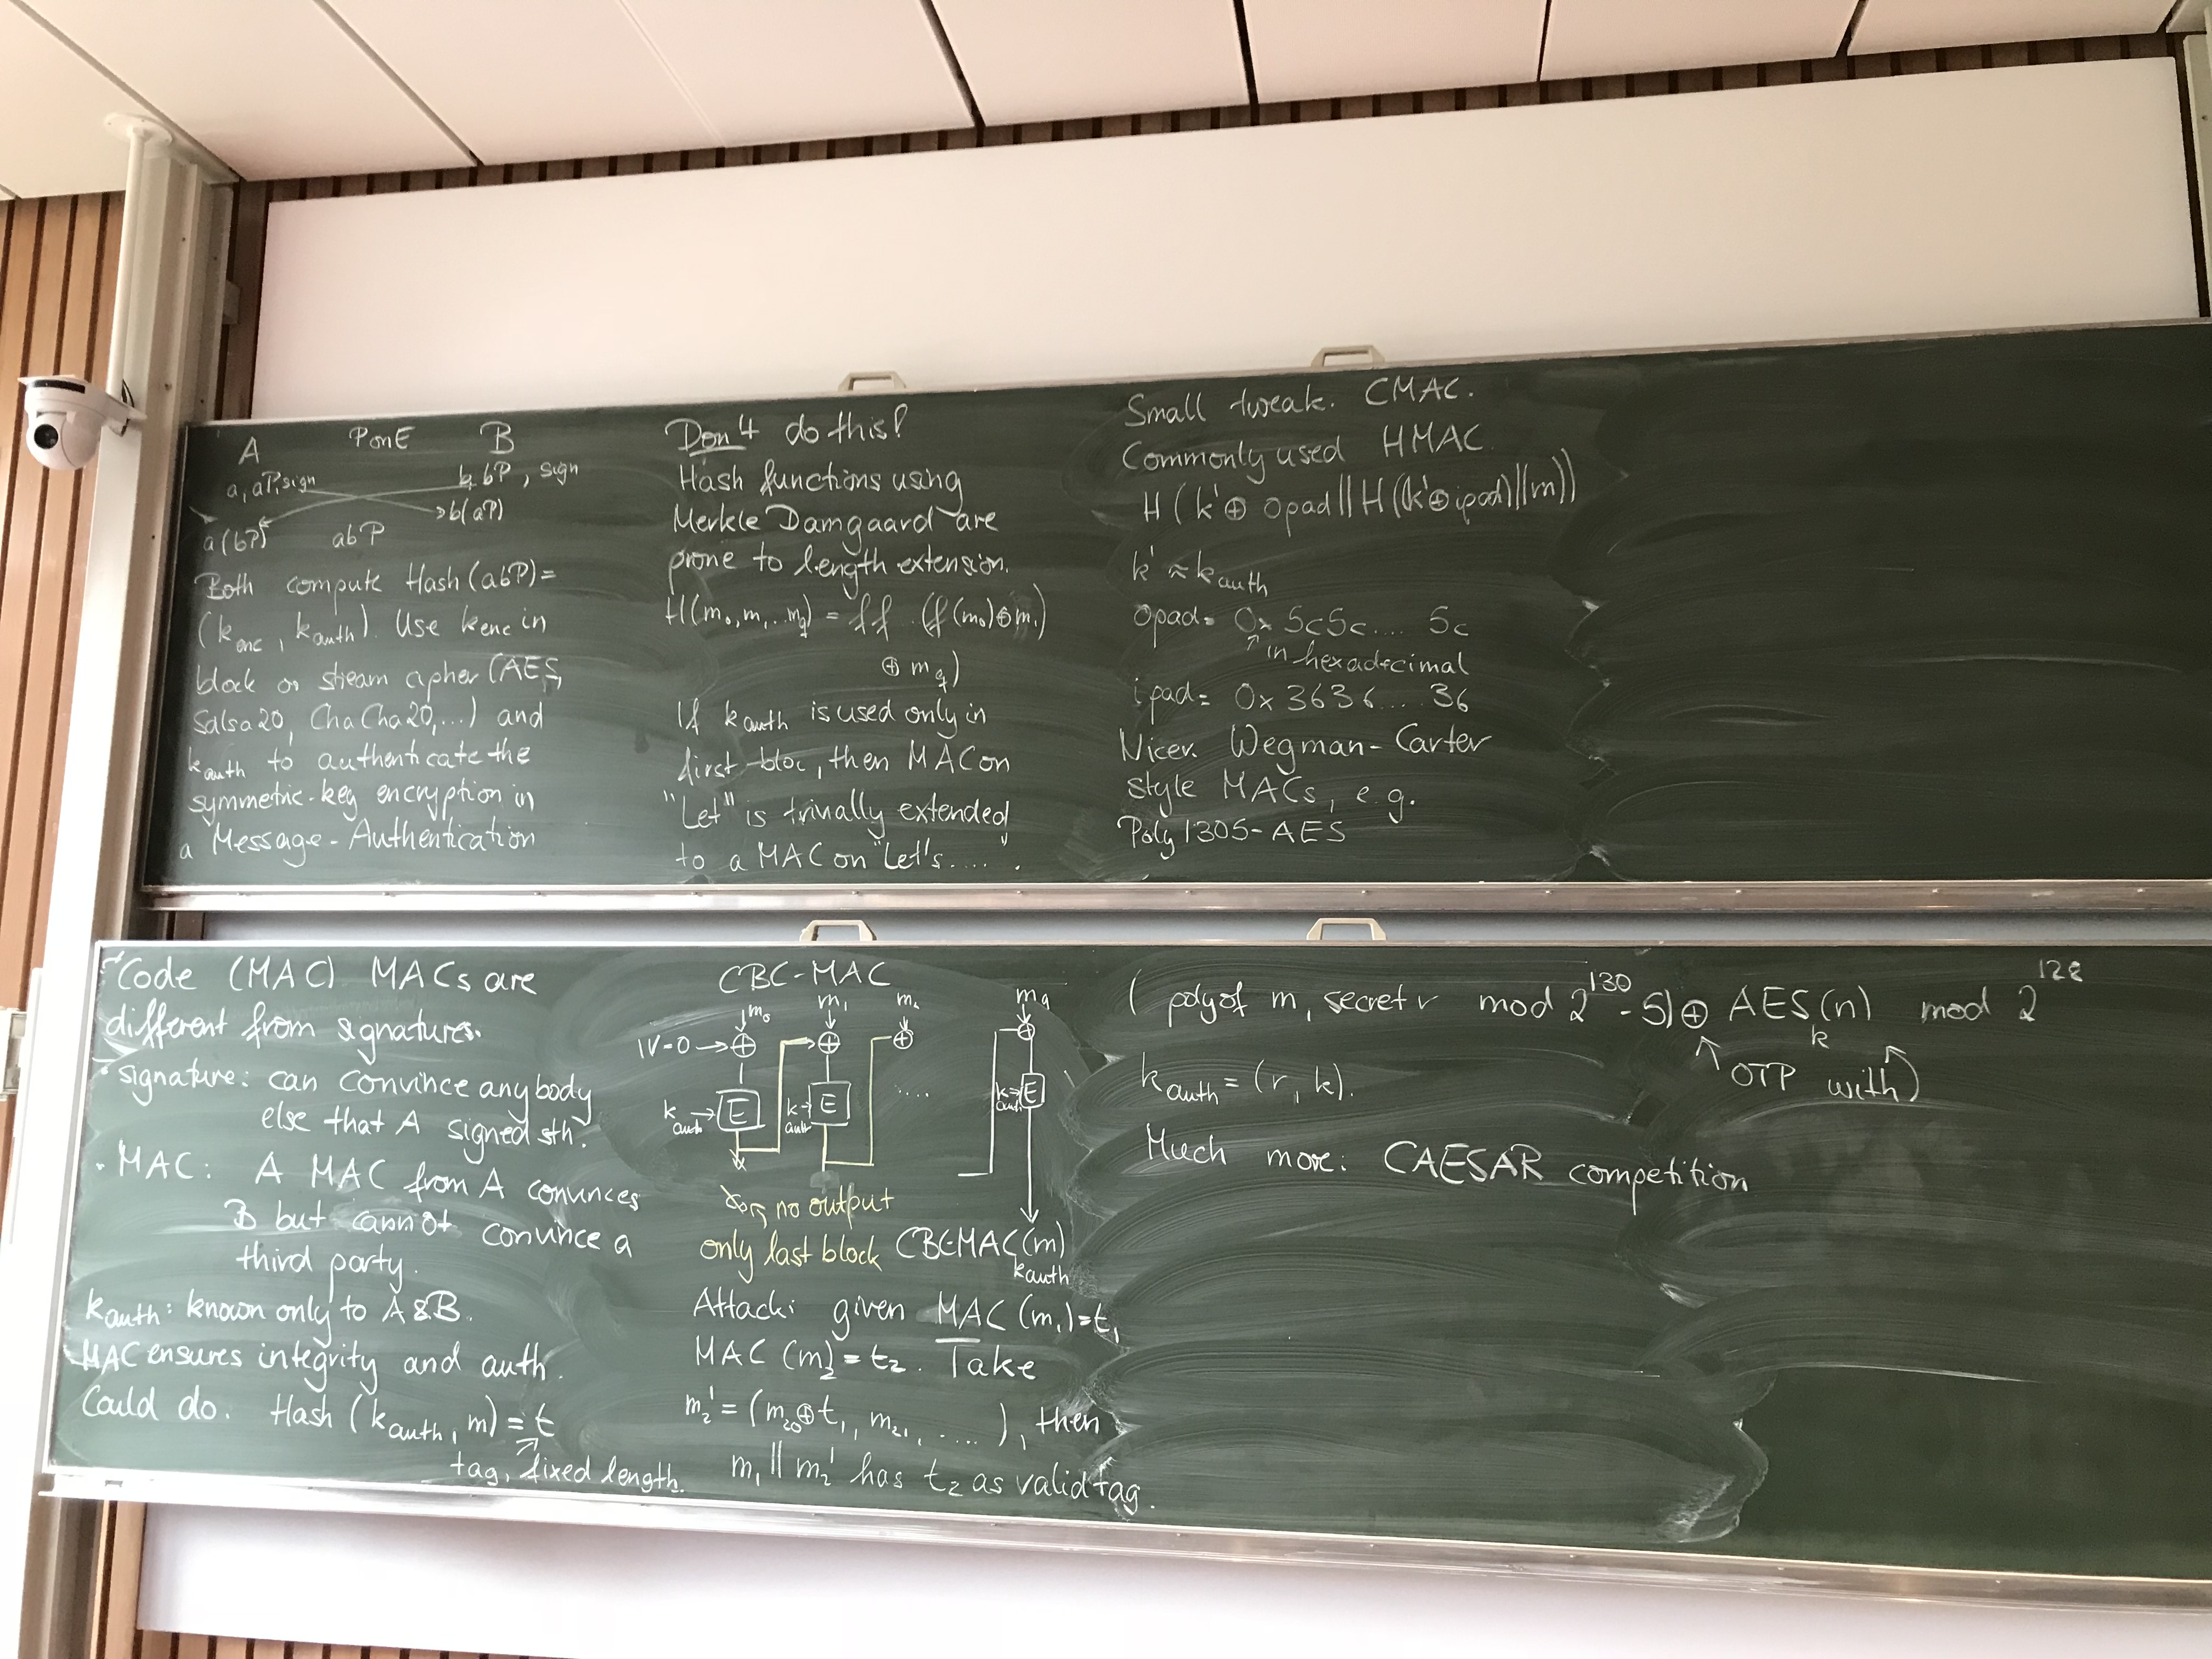 A PonE B
a, aP, sign b, bP, sign
a(bP) abP b(aP)
Both compute Hash(abP)=
(k_enc, k_auth). Use k_enc in
block or stream cipher (AES,
Salsa20, ChaCha20,...) and
k_auth to authenticate the
symmetric-key encryption in
a Message-Authentication
Code (MAC). MACs are
different from signatures.
· signature: can convince anybody
else that A signed sth.
· MAC: A MAC from A convinces
B but cannot convince a
third party.
k_auth: known only to A&B.
MAC ensures integrity and auth.
Could do. Hash (k_auth, m) = t
tag, fixed length.
Don't do this!
Hash functions using
Merkle Damgaard are
prone to length extension.
H(m_0, m_1...m_q) = f f .. (f(m_0)⊕m_1)
⊕ m_q)
If k_auth is used only in
first bloc, then MAC on
"Let" is trivally extended
to a MAC on "Let's....".
CBC-MAC
m_0 m_1 m_2 m_q
IV=0 → ⊕ ⊕ ⊕ ⊕
k_auth → E k_auth → E .... k_auth → E
no output
only last block CBC-MAC(m)
k_auth
Attack: given MAC(m_1)=t_1
MAC(m_2)=t_2. Take
m_2' = (m_20⊕t_1, m_21, ....), then
m_1 || m_2' has t_2 as valid tag.
Small tweak. CMAC.
Commonly used HMAC
H(k'⊕ opad || H((k'⊕ipad)||m))
k' ≈ k_auth
opad= 0x 5c5c.... 5c
in hexadecimal
ipad= 0x 3636.... 36
Nicer. Wegman-Carter
style MACs, e.g.
Poly1305-AES
(poly of m, secret r mod 2^130 -5) ⊕ AES_k(n) mod 2^128
OTP with)
k_auth = (r, k).
Much more: CAESAR competition